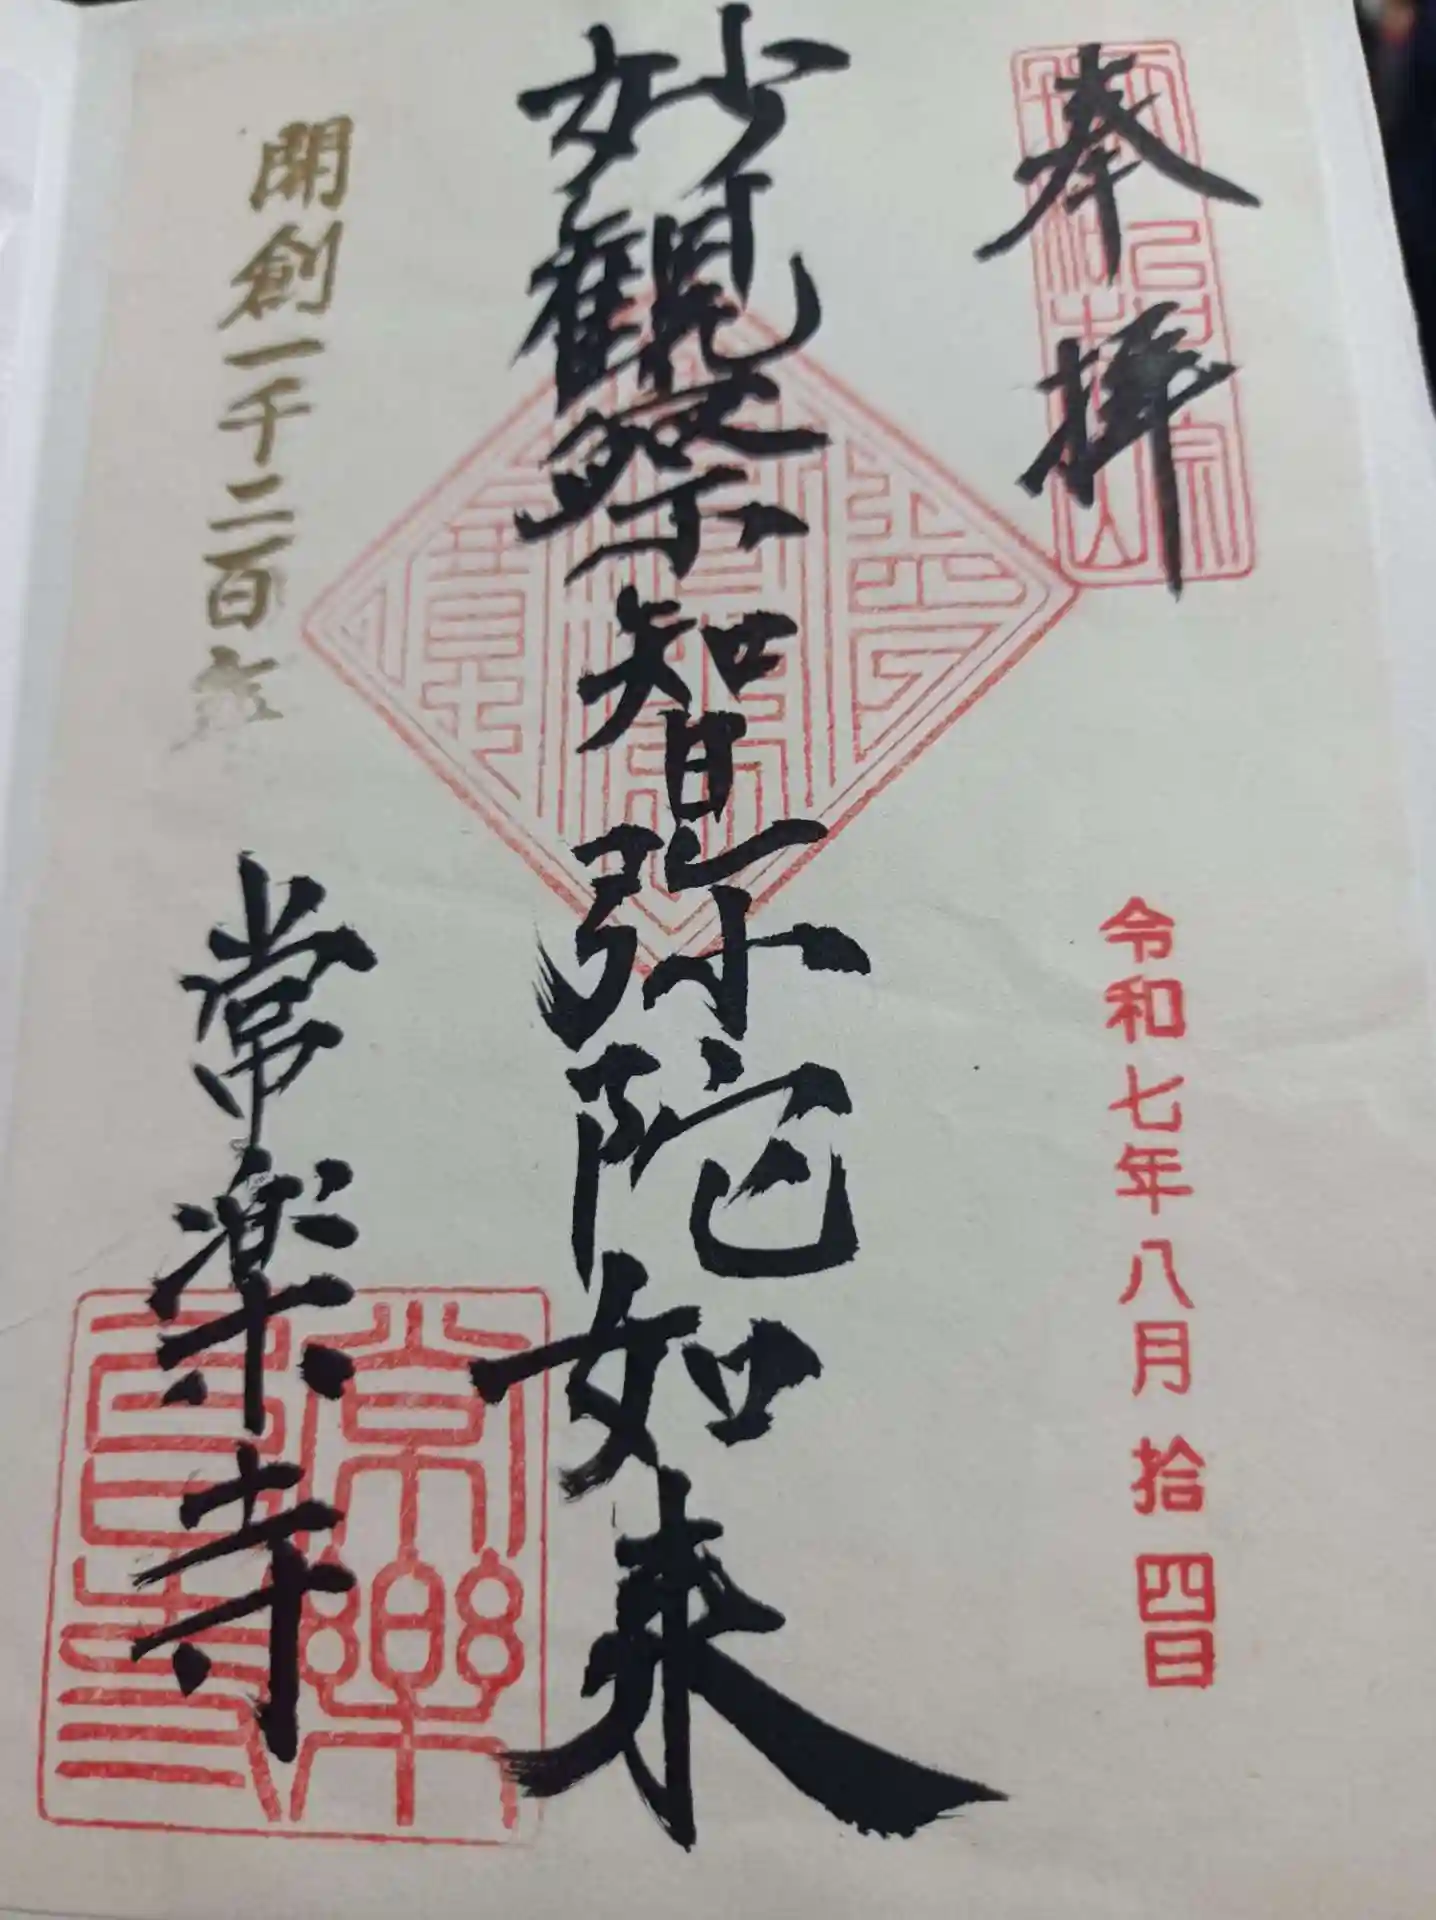 奉拝
令和七年八月拾四日
妙観察智弥陀如来
開創一千二百年
常楽寺